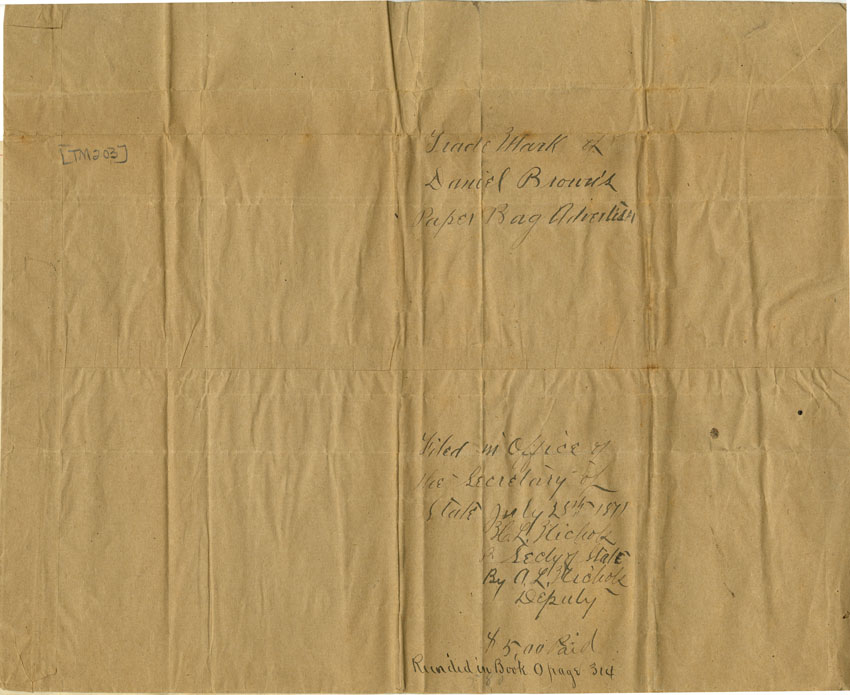 [TM203]
Trade Mark of
Daniel Brown's
Paper Bag Advertiser
Filed in Office of
the Secretary of
State July 25th 1871
H. L. Nichols
Secty of State
By A. L. Nichols
Deputy
$5.00 Paid
in Book O page 314